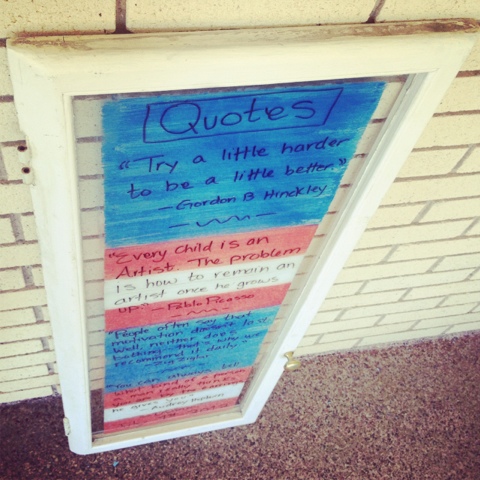 Quotes
"Try a little harder
to be a little better."
- Gordon B Hinckley
"Every Child is an
Artist. The problem
is how to remain an
artist once he grows
up." - Pablo Picasso
"People often say that
motivation doesn't last.
Well, neither does
bathing - that's why we
recommend it daily."
Zig Ziglar
"You can
what kind of a person
a man really
he gives you."
- Audrey Hepburn